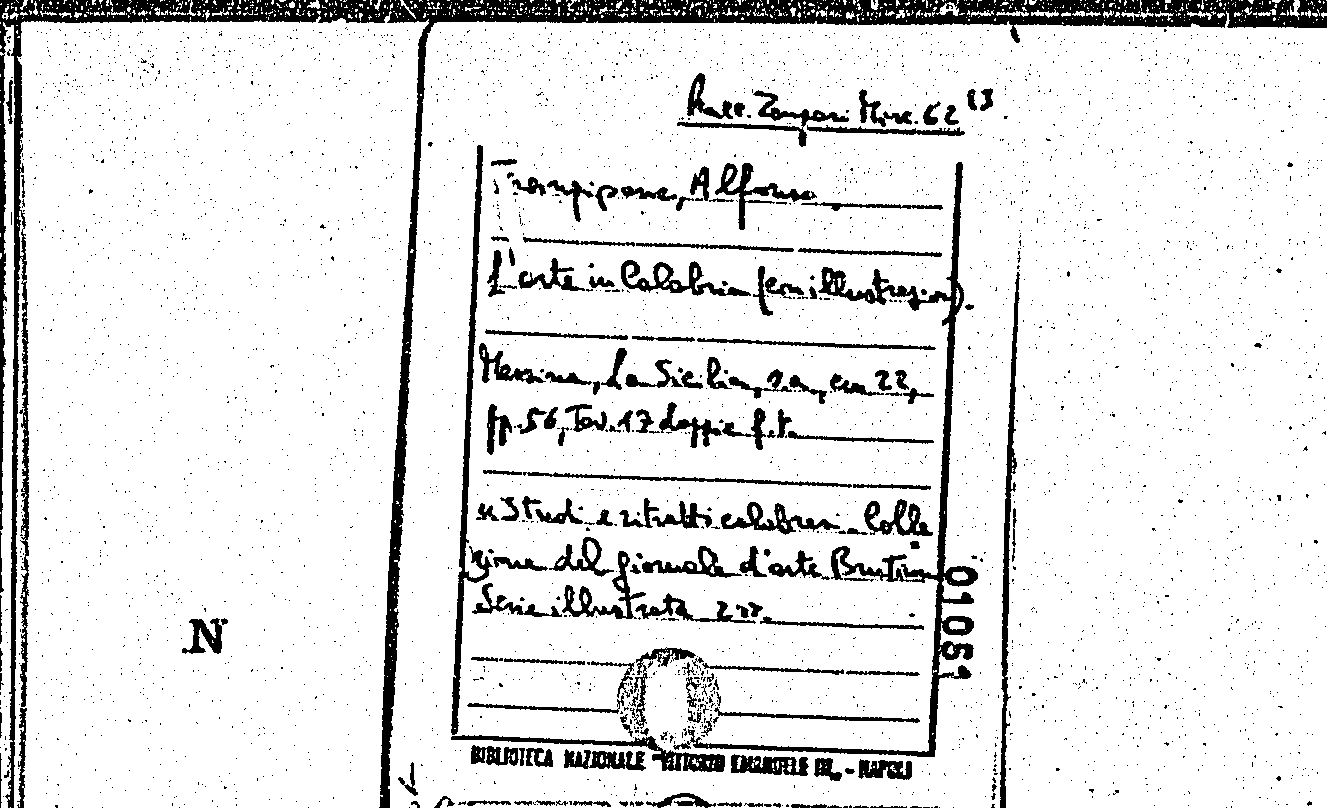 Racc. Zangari Misc. 62 13
Frangipane, Alfonso.
L'arte in Calabria (con illustrazioni).
Messina, La Sicilia, s.a., cm 22,
pp. 56, Tav. 17 doppie f.t.
« Studi e ritratti calabresi. Colle
zione del giornale d'arte Brutium
Serie illustrata
01051
N
BIBLIOTECA NAZIONALE "VITTORIO EMANUELE III" - NAPOLI